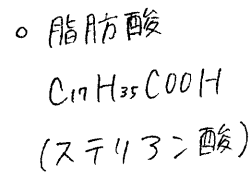 ○ 脂肪酸
C₁₇H₃₅COOH
(ステリアン酸)